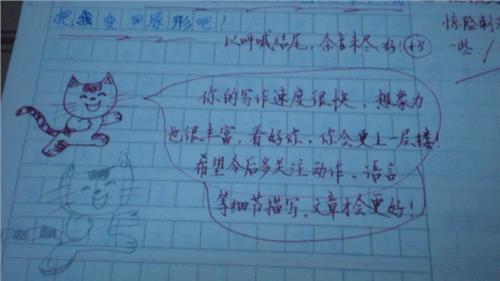 把我变回原形吧！
以呐喊结尾，余音未尽，好！+3
惊险刺激
一些！
你的写作速度很快，想象力
也很丰富，看好你，你会更上一层楼！
希望今后多关注动作、语言
等细节描写，文章才会更好！